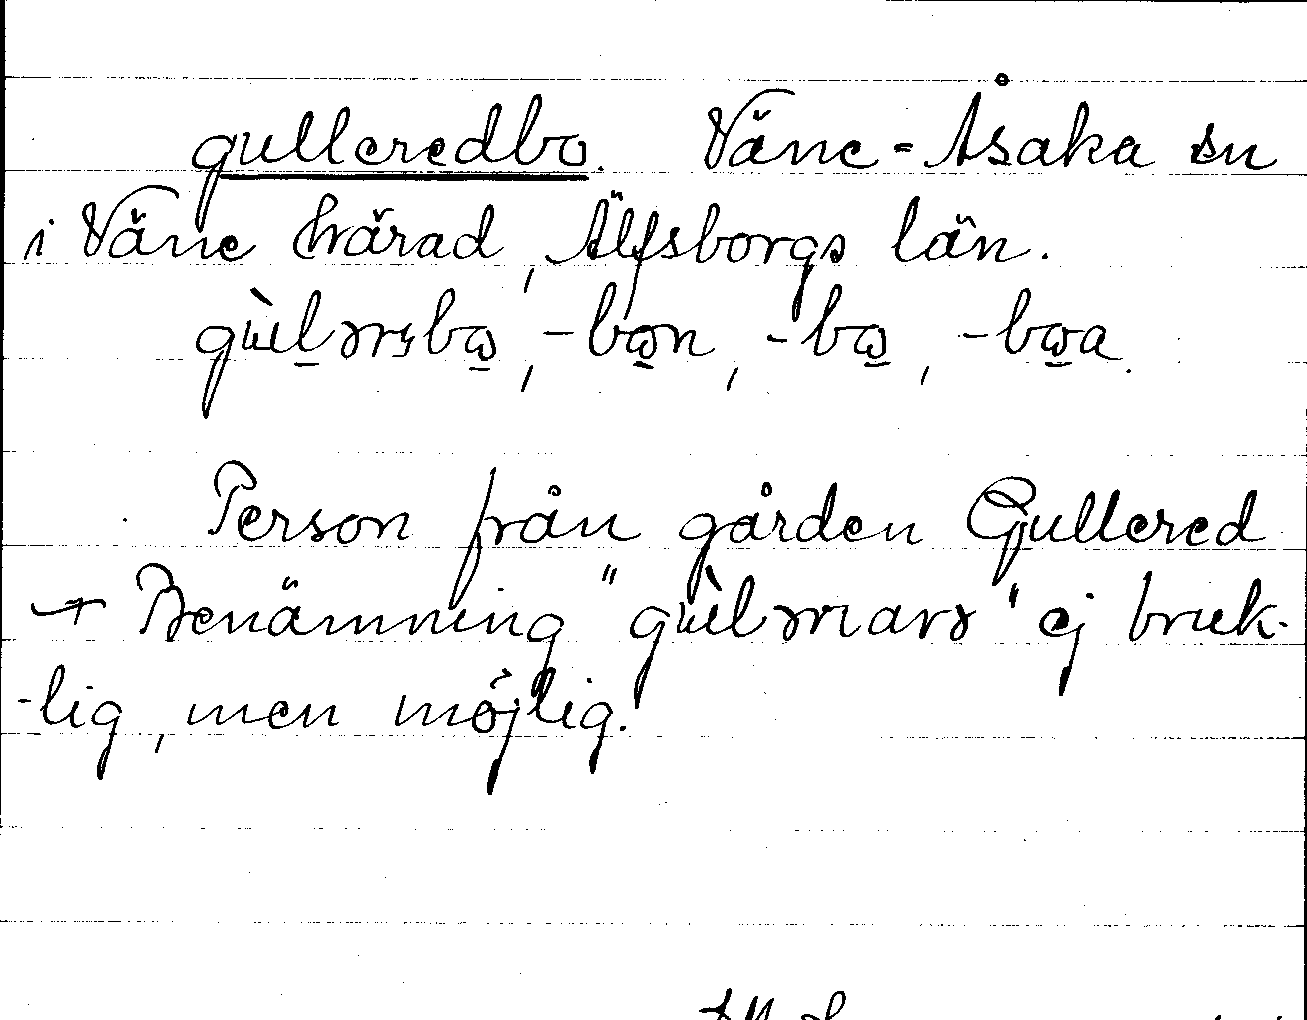 gulleredbo. Väne-Åsaka sn
i Väne härad, Älfsborgs län.
-bꞷn, -bꞷ, -bꞷa.
Person från gården Gullered
Benämning " " ej bruk-
-lig, men möjlig.